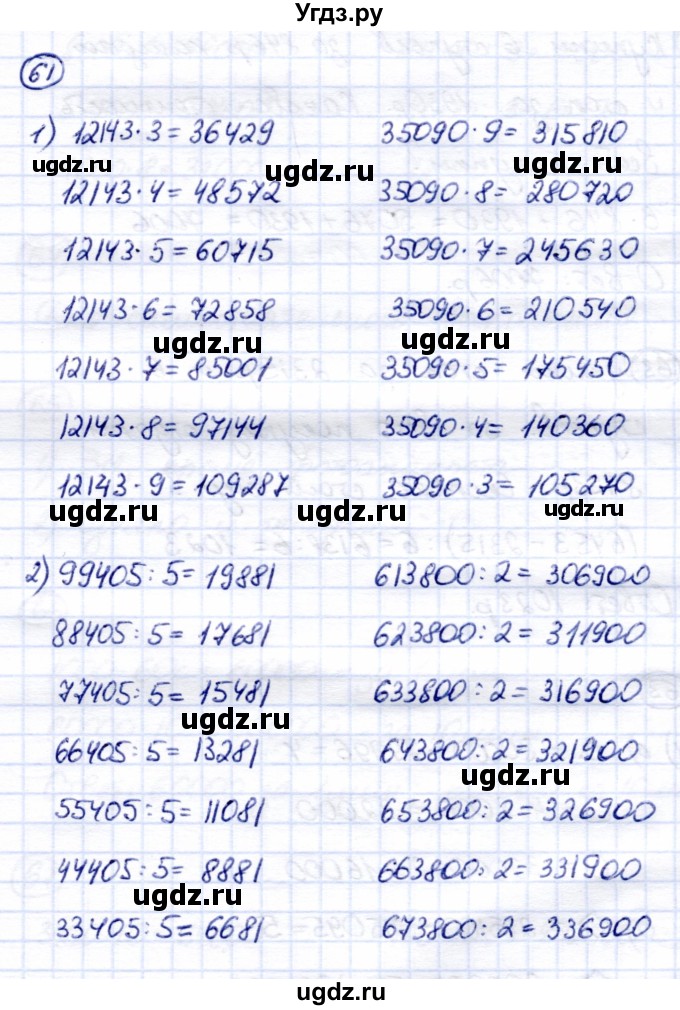 Угдз.ру
61
1) 12143·3=36429 35090·9=315810
ugdz.ru ugdz.ru
12143·4=48572 35090·8=280720
12143·5=60715 35090·7=245630
12143·6=72858 35090·6=210540
ugdz.ru ugdz.ru
12143·7=85001 35090·5=175450
12143·8=97144 35090·4=140360
12143·9=109287 35090·3=105270
ugdz.ru ugdz.ru
2) 99405:5=19881 613800:2=306900
88405:5=17681 623800:2=311900
77405:5=15481 633800:2=316900
ugdz.ru
66405:5=13281 643800:2=321900
ugdz.ru
55405:5=11081 653800:2=326900
44405:5=8881 663800:2=331900
ugdz.ru
33405:5=6681 673800:2=336900
ugdz.ru